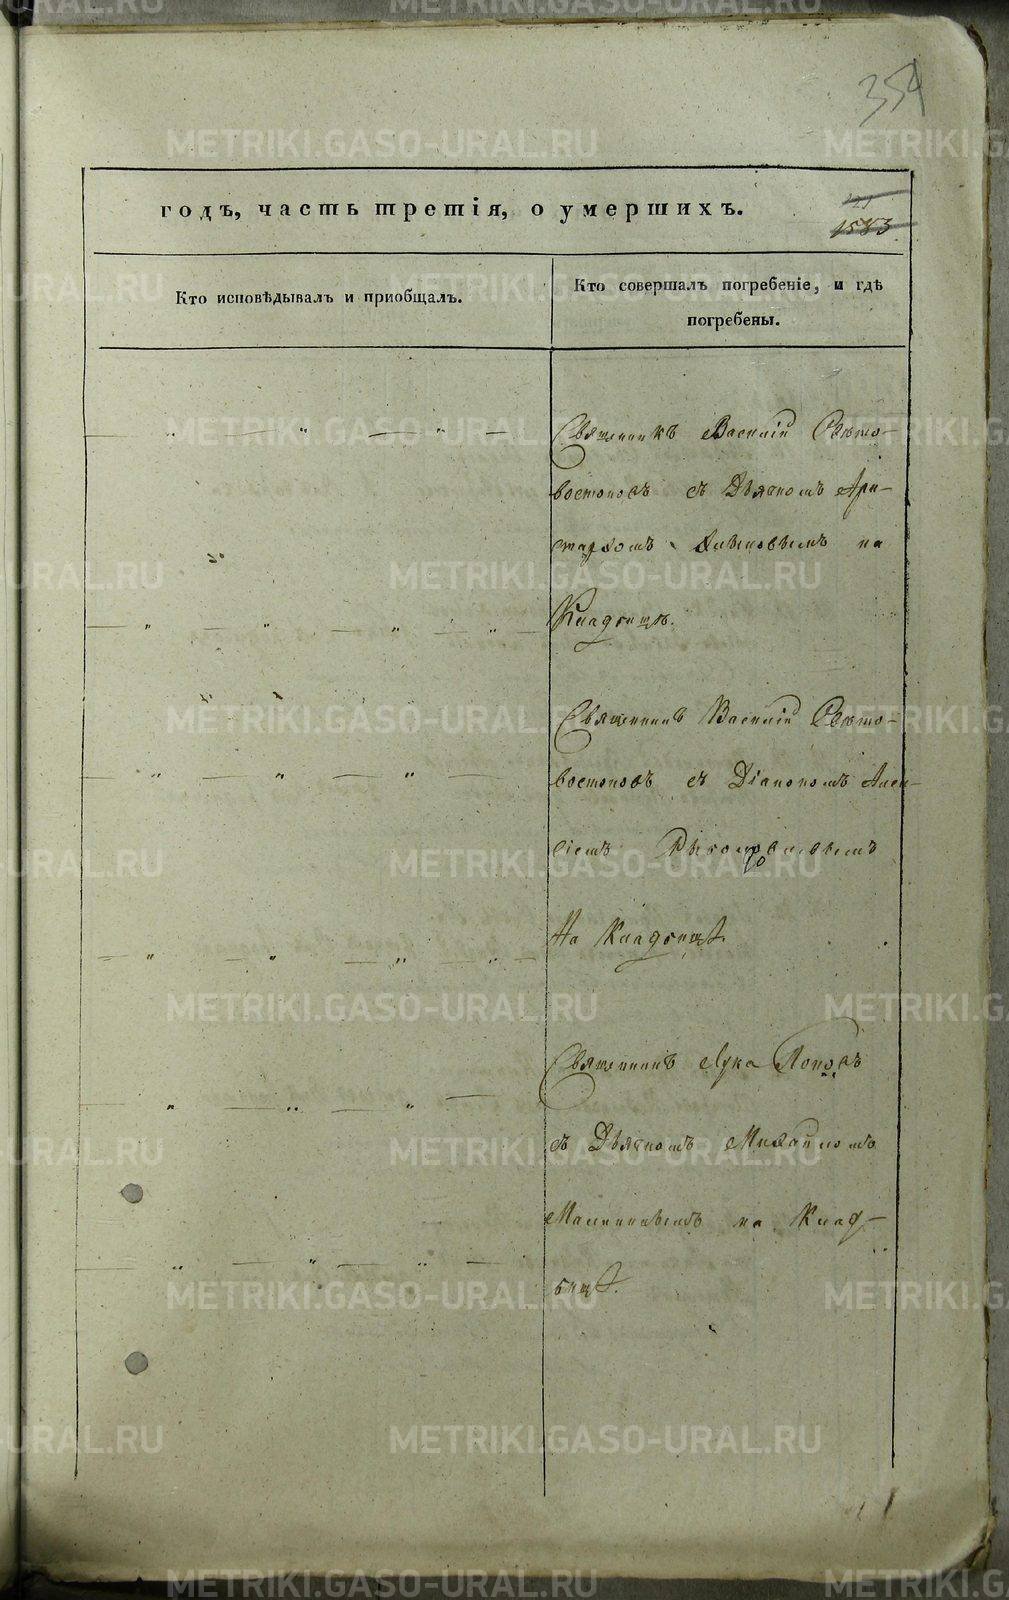 354
годъ, часть третія, о умершихъ.
1583
Кто исповѣдывалъ и пріобщалъ.
Кто совершалъ погребеніе, и гдѣ
погребены.
Священникъ Василій Свѣто-
востоковъ съ Дьячкомъ Ари-
стархомъ на
Кладбищѣ.
Священникъ Василій Свѣто-
востоковъ съ Діакономъ Алек-
сіемъ
На Кладбищѣ.
Священникъ Лука Поповъ
съ Дьячкомъ Михаиломъ
на Клад-
бищѣ.
METRIKI.GASO-URAL.RU